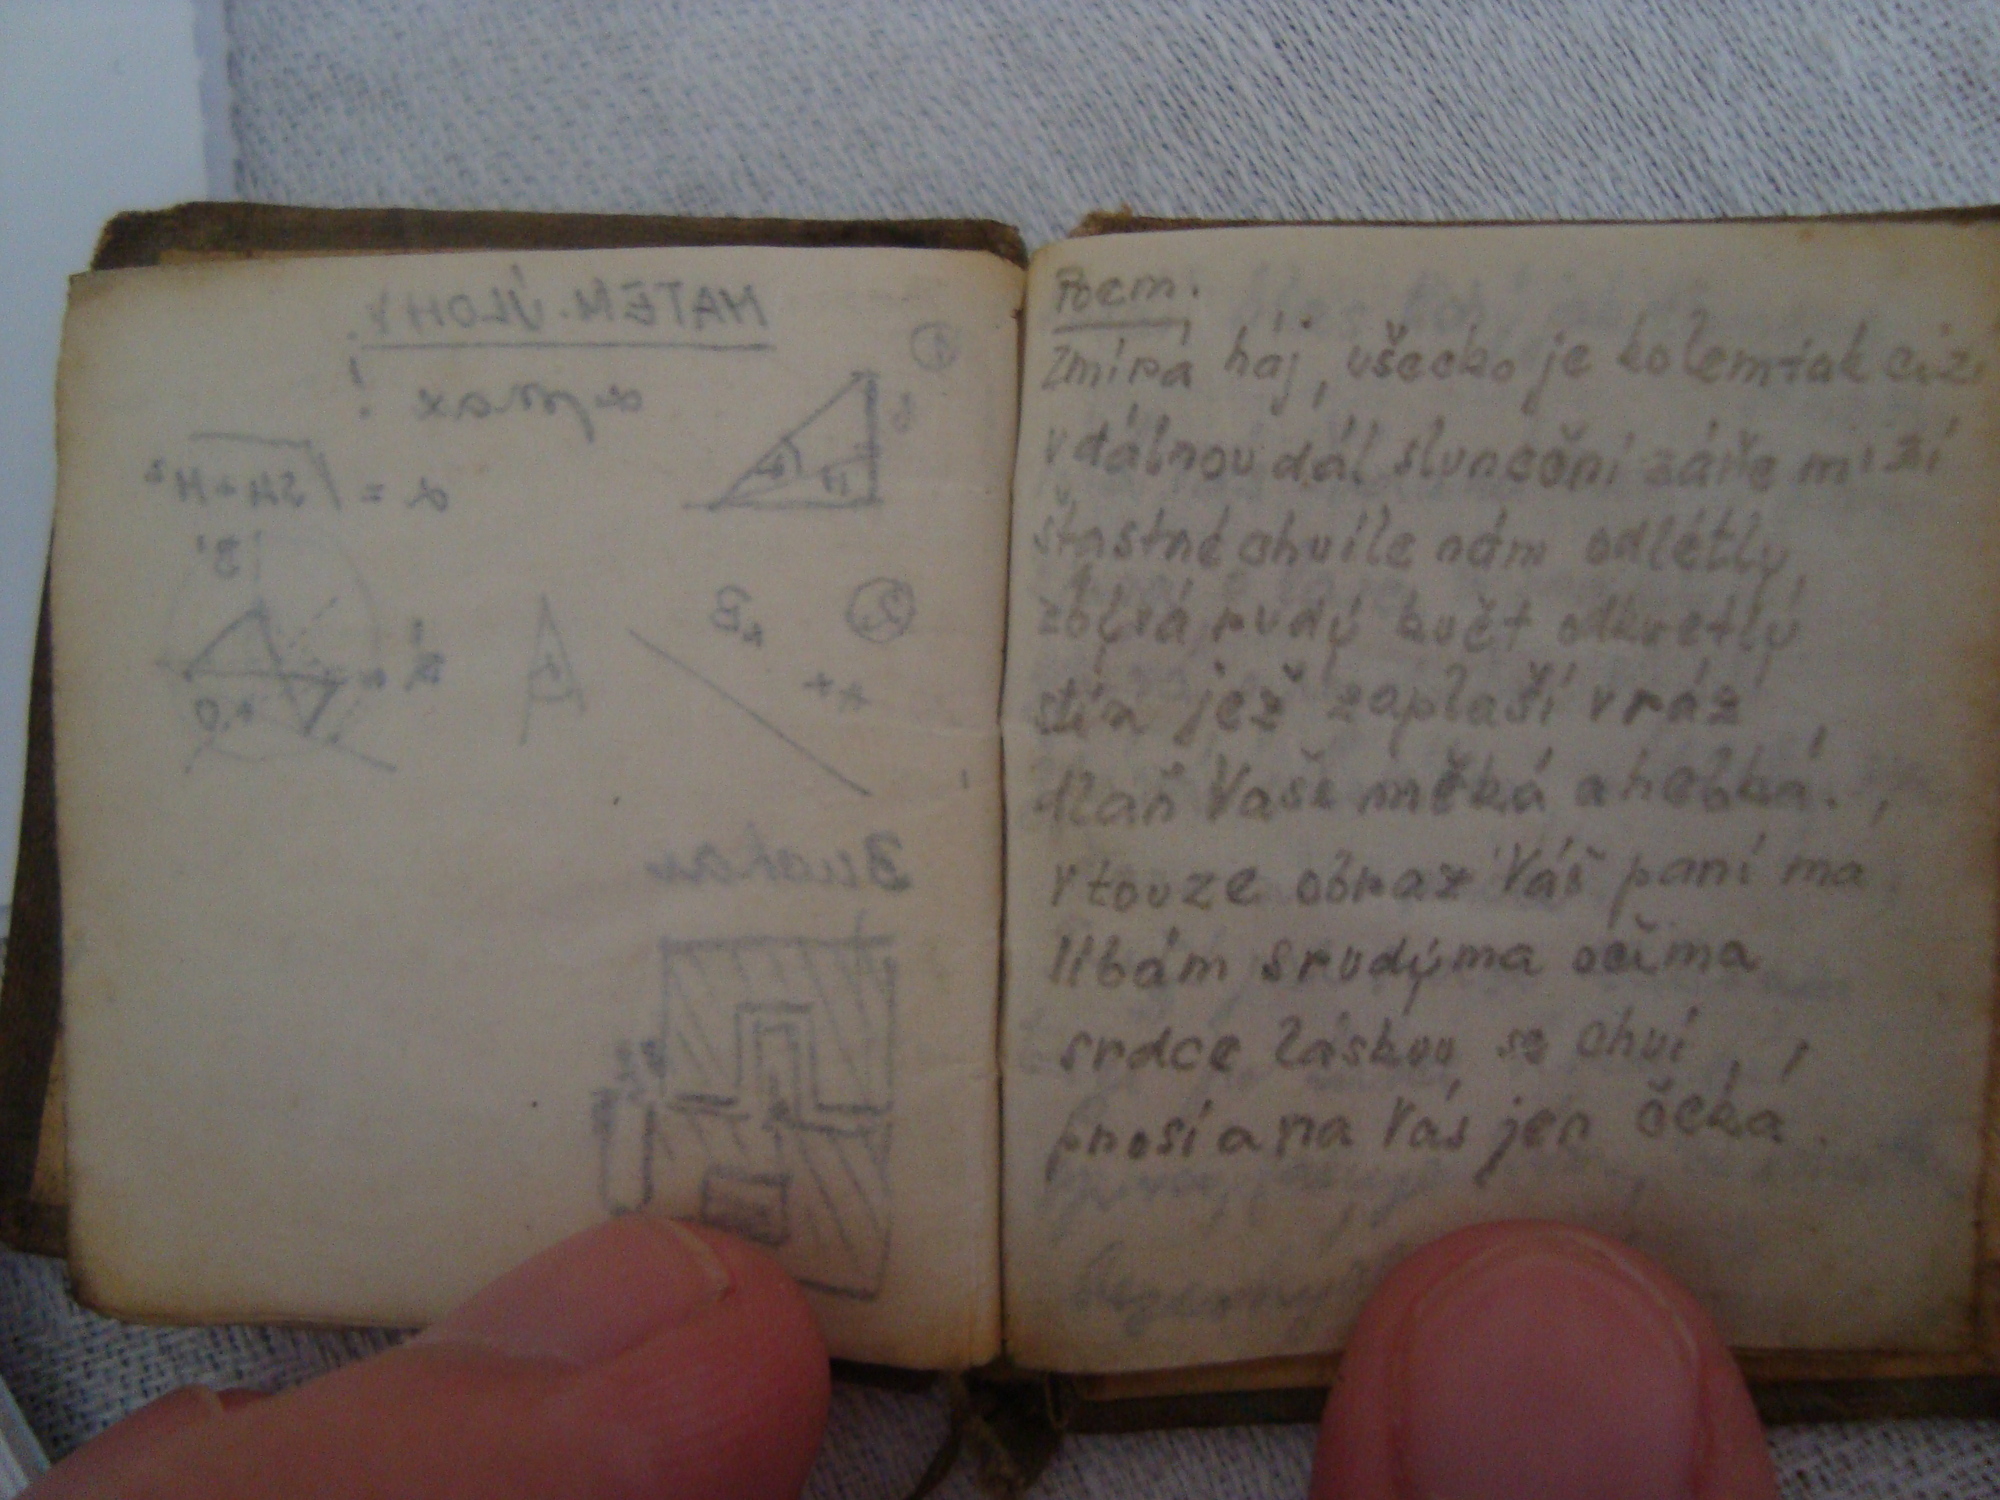 MATEM. ÚLOHY.
1
2.
B
A
B'
A'
O
Poem.
Zmírá háj, všecko je kolem tak cizí
v dálnou dál sluneční záře mizí
šťastné chvíle nám odlétly,
zbývá rudý květ odkvetlý
stín jež zaplaší vráz
dlaň Vaše měká a hebká.
V touze obraz Váš paní má
líbám s rudýma očima
srdce láskou se chví,
prosí a na Vás jen čeká.